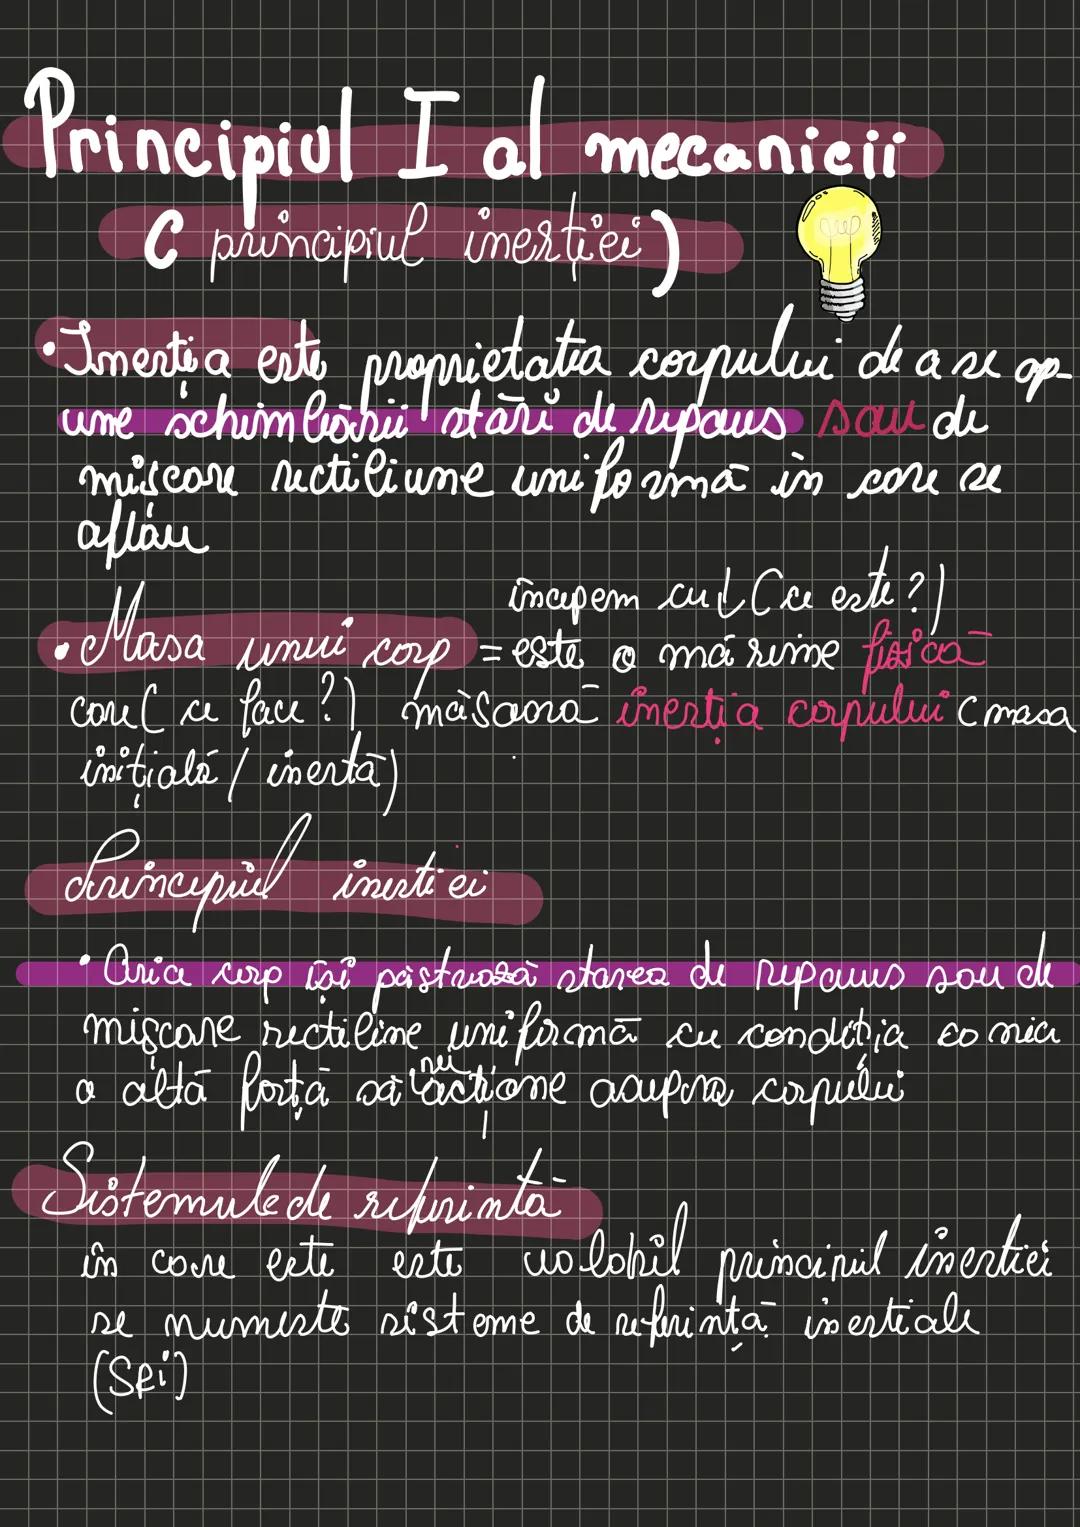 Principiul I al mecanicii
( principiul inerției )
• Inerția este proprietatea corpului de a se op-
une schimbării stări de repaus sau de
mișcare rectiliune uniformă în care se
aflau
începem cu (ce este?)
• Masa unui corp = este o mărime fizică
care ( ce face ? ) măsoară inerția corpului (masa
inițială / inertă)
Principiul inertiei
• Orice corp își păstrează starea de repaus sau de
mișcare rectiline uniformă cu condiția ca nici
o altă forță să nu acțione asupra corpului
Sistemule de referintă
în care este este valabil principiul inertiei
se numeste sisteme de referință inertiale
(SRi)